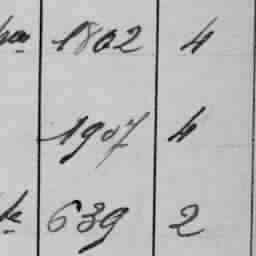 1802 4
1907 4
639 2